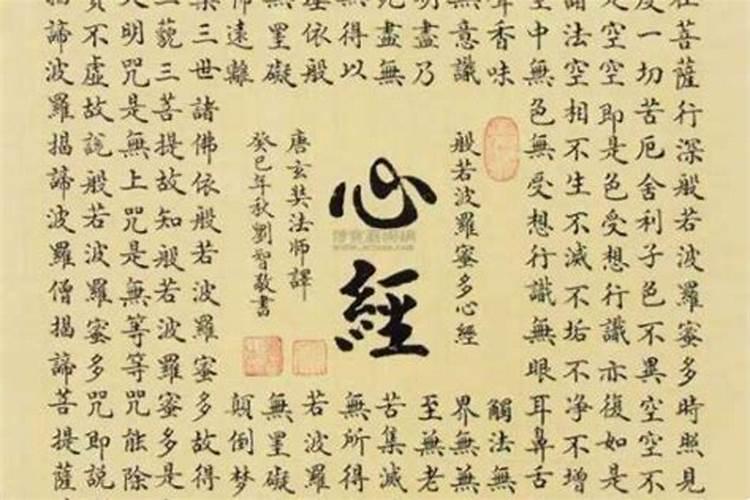 在菩薩行深般若波羅蜜多時照見
度一切苦厄舍利子色不異空空不
是空空即是色受想行識亦復如是
諸法空相不生不滅不垢不淨不增
空中無色無受想行識無眼耳鼻舌
聲香味
觸法無
無意識
界無無
明盡乃
至無老
死盡無
苦集滅
無得以
無所得
依般
若波羅
無罣礙
無罣礙
怖遠離
顛倒夢
般若波羅蜜多心經
心經
唐玄奘法師譯
癸巳年秋劉智敬書
槃三世諸佛依般若波羅蜜多故得
三藐三菩提故知般若波羅蜜多是
大明咒是無上咒是無等等咒能除
實不虛故說般若波羅蜜多咒即說
揭諦波羅揭諦波羅僧揭諦菩提薩